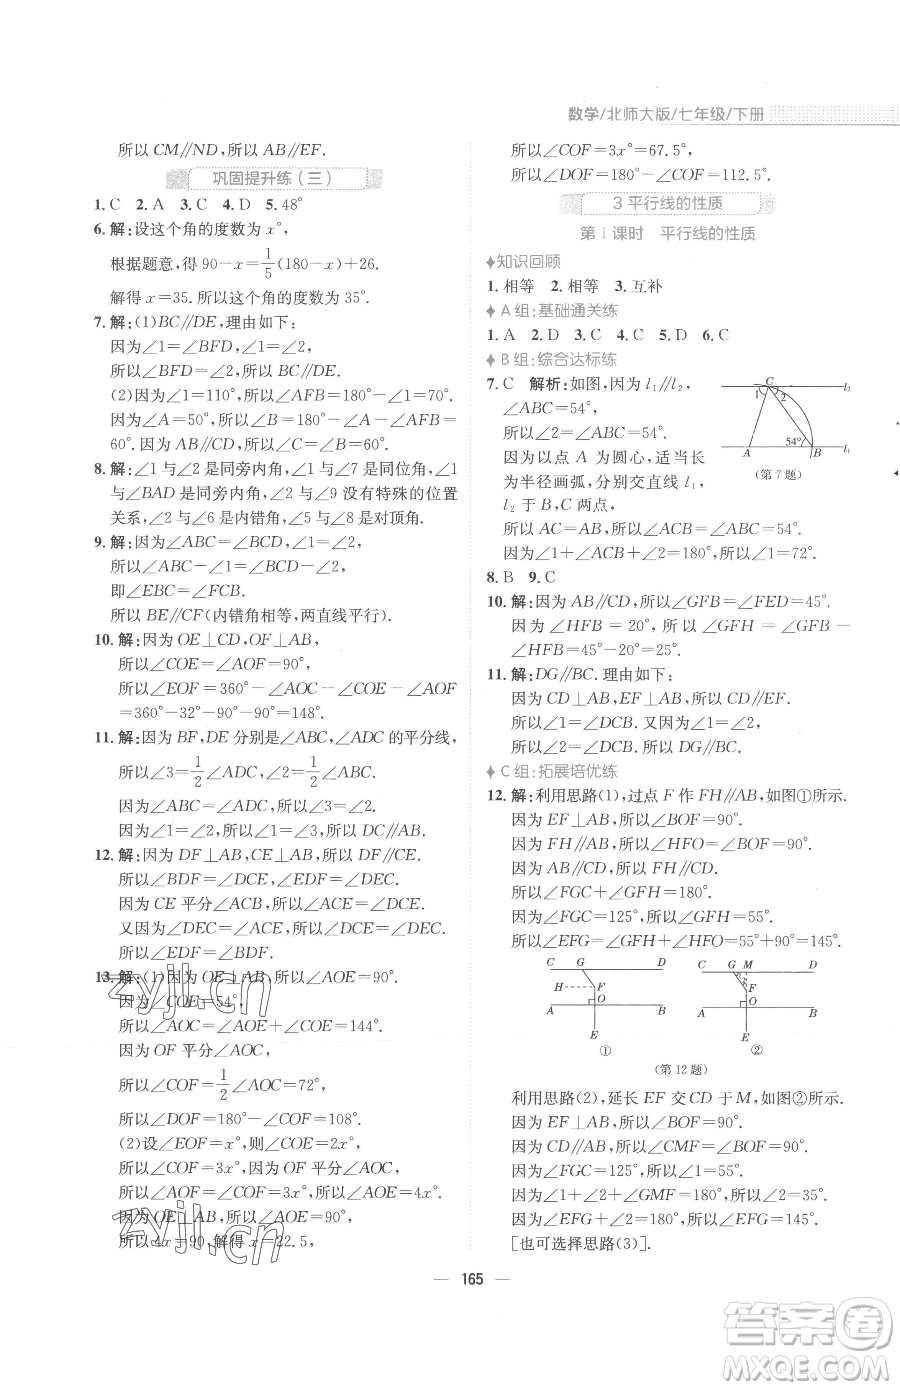 数学/北师大版/七年级/下册
所以CM∥ND,所以AB∥EF.
巩固提升练(三)
1. C 2. A 3. C 4. D 5. 48°
6. 解:设这个角的度数为x°,
根据题意,得90-x=1/5(180-x)+26.
解得x=35. 所以这个角的度数为35°.
7. 解:(1)BC∥DE,理由如下:
因为∠1=∠BFD,∠1=∠B,
所以∠BFD=∠B,所以BC∥DE.
(2)因为∠1=110°,所以∠AFB=180°-∠1=70°.
因为∠A=50°,所以∠B=180°-∠A-∠AFB=
60°. 因为AB∥CD,所以∠C=∠B=60°.
8. 解:∠1与∠2是同旁内角,∠1与∠7是同位角,∠1
与∠BAD是同旁内角,∠2与∠9没有特殊的位置
关系,∠2与∠6是内错角,∠5与∠8是对顶角.
9. 解:因为∠ABC=∠BCD,∠1=∠2,
所以∠ABC-∠1=∠BCD-∠2,
即∠EBC=∠FCB.
所以BE∥CF(内错角相等,两直线平行).
10. 解:因为OE⊥CD,OF⊥AB,
所以∠COE=∠AOF=90°,
所以∠EOF=360°-∠AOC-∠COE-∠AOF
=360°-32°-90°-90°=148°.
11. 解:因为BF,DE分别是∠ABC,∠ADC的平分线,
所以∠3=1/2∠ADC,∠2=1/2∠ABC.
因为∠ABC=∠ADC,所以∠3=∠2.
因为∠1=∠2,所以∠1=∠3,所以DC∥AB.
12. 解:因为DF⊥AB,CE⊥AB,所以DF∥CE.
所以∠BDF=∠DCE,∠EDF=∠DEC.
因为CE平分∠ACB,所以∠ACE=∠DCE.
又因为∠DEC=∠ACE,所以∠DCE=∠DEC.
所以∠EDF=∠BDF.
13. 解:(1)因为OE⊥AB,所以∠AOE=90°.
因为∠COE=54°,
所以∠AOC=∠AOE+∠COE=144°.
因为OF平分∠AOC,
所以∠COF=1/2∠AOC=72°,
所以∠DOF=180°-∠COF=108°.
(2)设∠EOF=x°,则∠COE=2x°,
所以∠COF=3x°.因为OF平分∠AOC,
所以∠AOF=∠COF=3x°,所以∠AOE=4x°.
因为OE⊥AB,所以∠AOE=90°,
所以4x=90,解得x=22.5,
所以∠COF=3x°=67.5°,
所以∠DOF=180°-∠COF=112.5°.
3 平行线的性质
第1课时 平行线的性质
知识回顾
1. 相等 2. 相等 3. 互补
A组:基础通关练
1. A 2. D 3. C 4. C 5. D 6. C
B组:综合达标练
7. C 解析:如图,因为l₁∥l₂,
∠ABC=54°,
所以∠2=∠ABC=54°.
因为以点A为圆心,适当长
为半径画弧,分别交直线l₁,
l₂于B,C两点,
所以AC=AB,所以∠ACB=∠ABC=54°.
因为∠1+∠ACB+∠2=180°,所以∠1=72°.
C l₂
1 2
54°
A B l₁
(第7题)
8. B 9. C
10. 解:因为AB∥CD,所以∠GFB=∠FED=45°.
因为∠HFB=20°,所以∠GFH=∠GFB-
∠HFB=45°-20°=25°.
11. 解:DG∥BC. 理由如下:
因为CD⊥AB,EF⊥AB,所以CD∥EF.
所以∠2=∠DCB. 又因为∠1=∠2,
所以∠1=∠DCB. 所以DG∥BC.
C组:拓展培优练
12. 解:利用思路(1),过点F作FH∥AB,如图①所示.
因为EF⊥AB,所以∠BOF=90°.
因为FH∥AB,所以∠HFO=∠BOF=90°.
因为AB∥CD,所以FH∥CD.
所以∠FGC+∠GFH=180°.
因为∠FGC=125°,所以∠GFH=55°.
所以∠EFG=∠GFH+∠HFO=55°+90°=145°.
C G D
H F
A O B
E
①
C G M D
F
A O B
E
②
(第12题)
利用思路(2),延长EF交CD于M,如图②所示.
因为EF⊥AB,所以∠BOF=90°.
因为CD∥AB,所以∠CMF=∠BOF=90°.
因为∠FGC=125°,所以∠1=55°.
因为∠1+∠2+∠GMF=180°,所以∠2=35°.
因为∠EFG+∠2=180°,所以∠EFG=145°.
[也可选择思路(3)].
165
zyjl.cn
zyjl.cn
答案圈
MXQE.COM